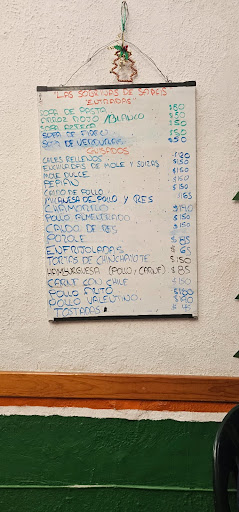 LAS SOBRINAS DE
"ENTRADAS"
SOPA DE PASTA $50
ARROZ ROJO /BLANCO $50
SOPA AZTECA $50
SOPA DE FIDEO $50
SOPA DE VERDURAS $50
GUISADOS
CHILES RELLENOS
ENCHILADAS DE MOLE Y SUIZAS $150
MOLE DULCE $150
PEPIAN $150
CALDO DE POLLO
MILANESA DE POLLO Y RES
CHAMORRO $190
POLLO ALMENDRADO $150
CALDO DE RES $150
POZOLE $85
ENFRIJOLADAS $65
TORTAS DE CHINCHAYOTE $150
HAMBURGUESA (POLLO/CARNE) $85
CARNE CON CHILE $150
POLLO FRITO $150
POLLO VALENTINO
TOSTADAS $45